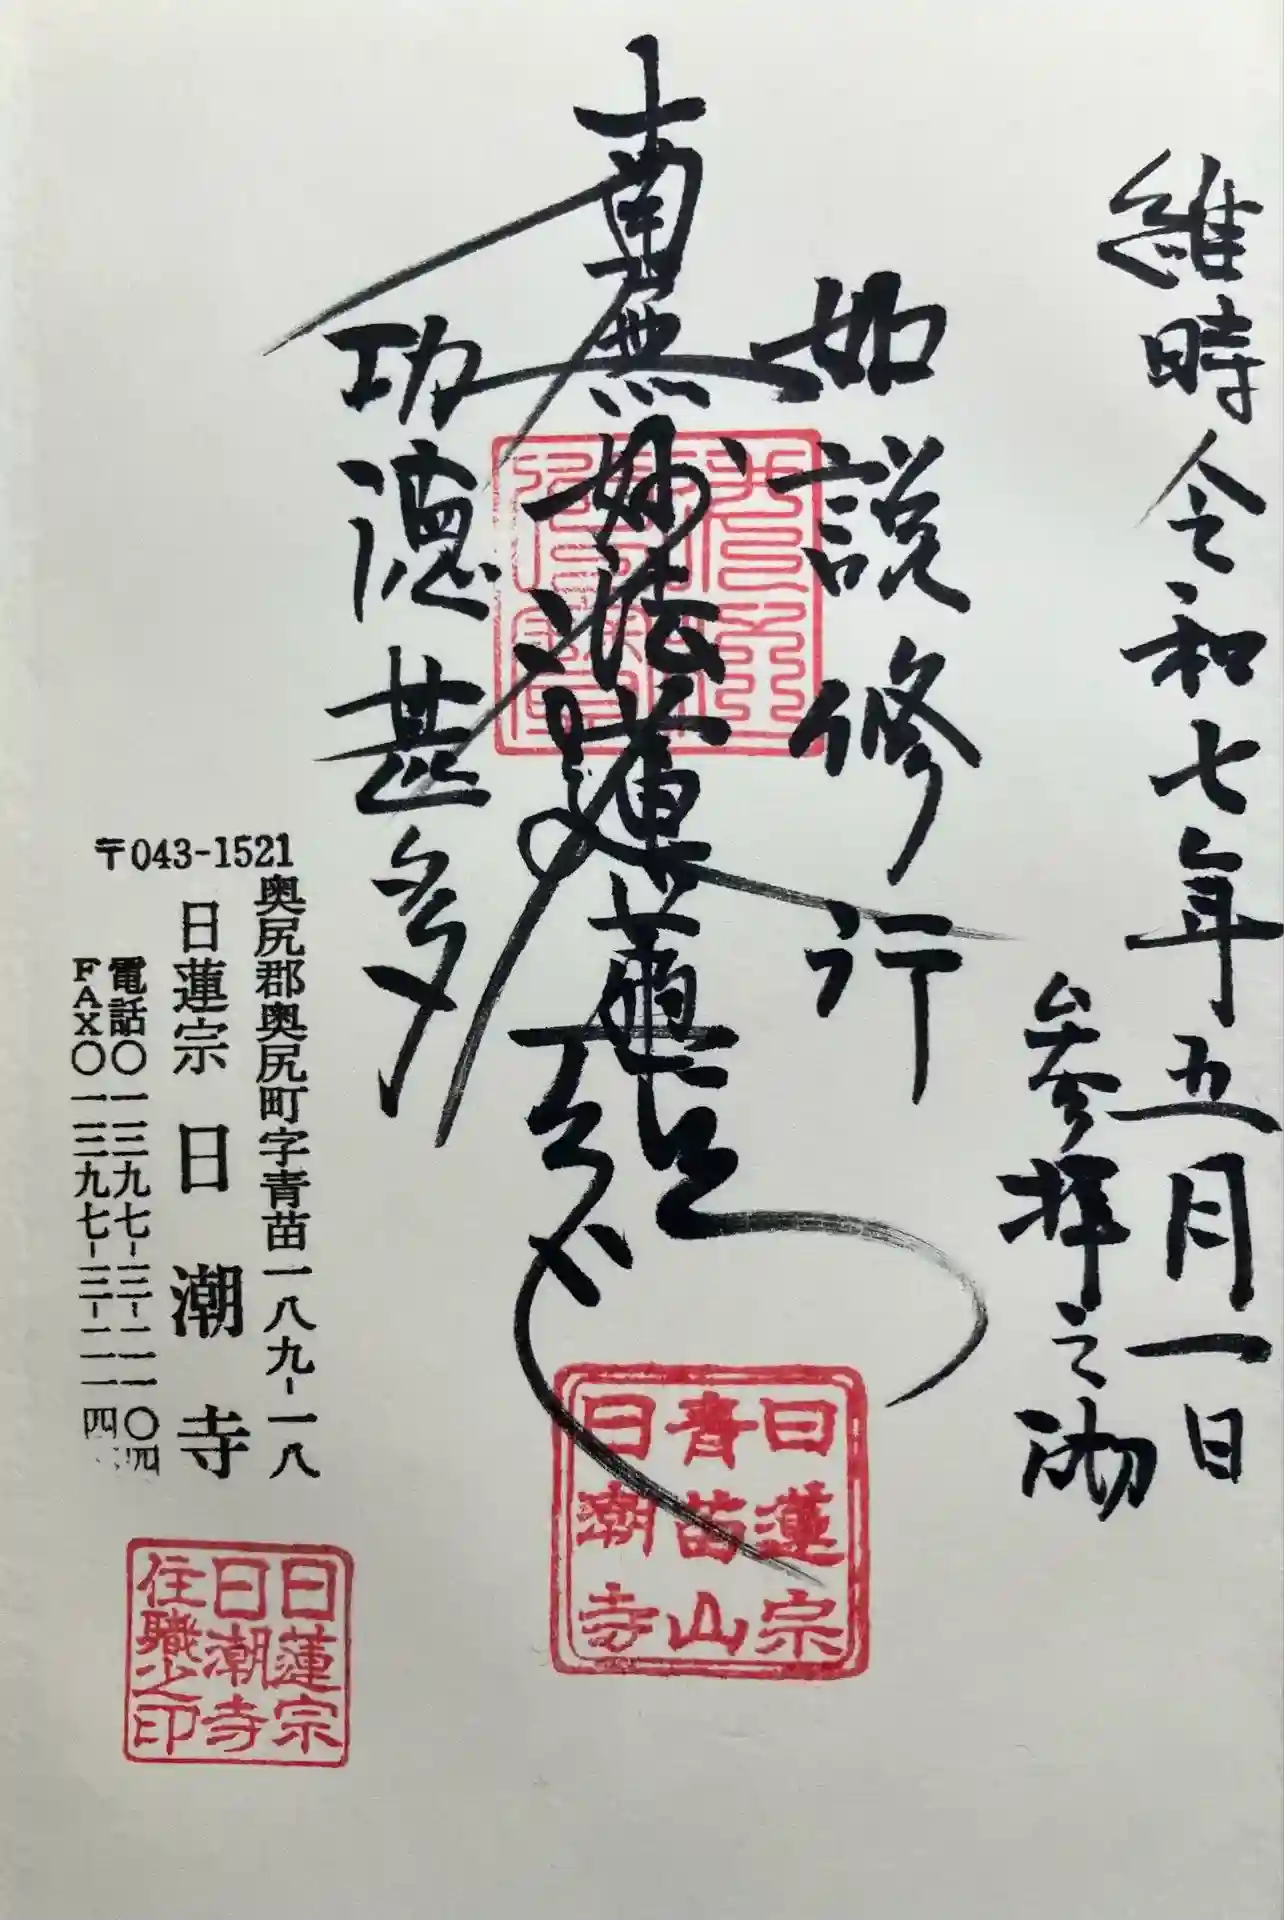 維時令和七年五月一日
参拝之砌
如説修行
南無妙法蓮華経
功徳甚多
日蓮宗
青苗山
日潮寺
〒043-1521
奥尻郡奥尻町字青苗一八九-一八
日蓮宗 日潮寺
電話〇一三九七-三-二一〇四
FAX〇一三九七-三-二一一四
日蓮宗
日潮寺
住職之印